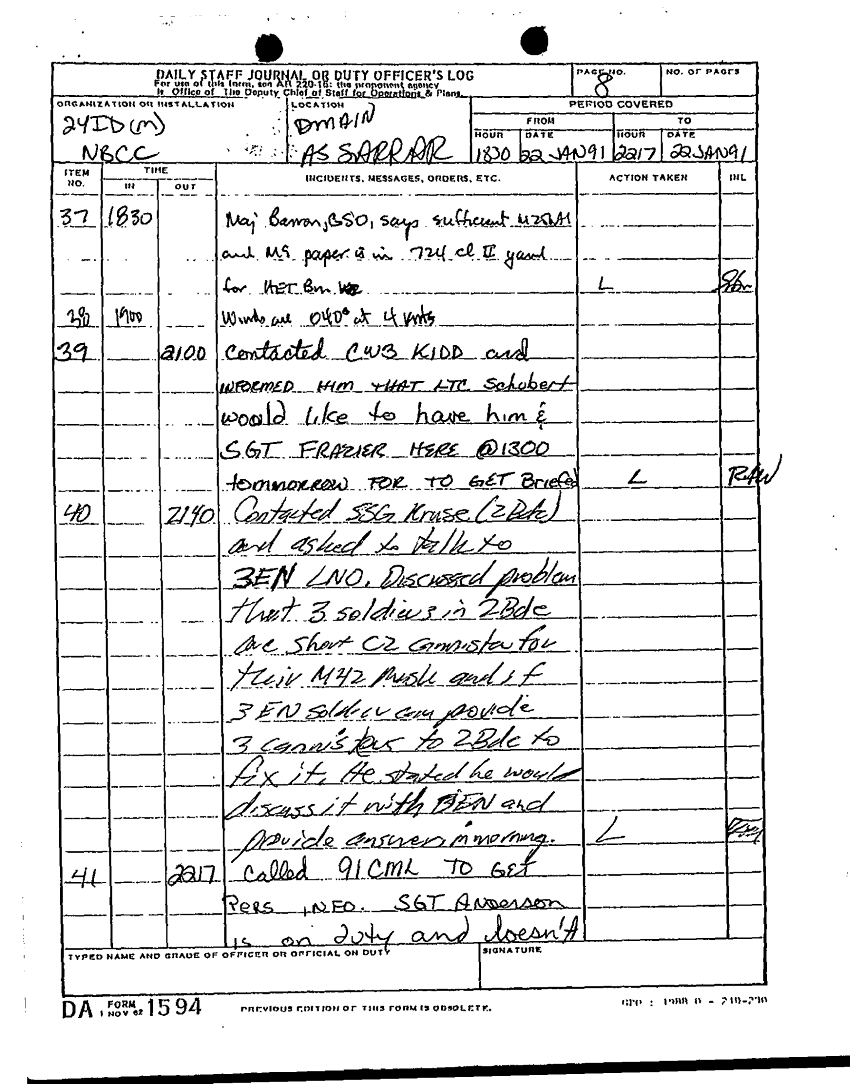 DAILY STAFF JOURNAL OR DUTY OFFICER'S LOG
For use of this form, see AR 220-15; the proponent agency
is Office of The Deputy Chief of Staff for Operations & Plans.
PAGE NO.
8
NO. OF PAGES
ORGANIZATION OR INSTALLATION
24ID(M)
NBCC
LOCATION
DMAIN
AS SARRAR
PERIOD COVERED
FROM TO
HOUR DATE HOUR DATE
1830 22 JAN91 2217 22JAN91
ITEM NO. TIME INCIDENTS, MESSAGES, ORDERS, ETC. ACTION TAKEN INL
IN OUT
37 1830 Maj Barron, GSO, says sufficient M258A1
and M9 paper is in 724 cl II yard
for HET Bn L
38 1900 Winds are 040° at 4 knts
39 2100 Contacted CW3 KIDD and
INFORMED HIM THAT LTC Schubert
would like to have him &
SGT FRAZIER HERE @1300
tommorrow FOR TO GET Briefed L RAW
40 2140 Contacted SSG Kruse (2Bde)
and asked to talk to
3EN LNO. Discussed problem
that 3 soldiers in 2Bde
are short C2 cannister for
their M42 Mask and if
3 EN soldier can provide
3 cannisters to 2Bde to
fix it. He stated he would
discuss it with 3EN and
provide answer in morning. L
41 2217 Called 91CML TO GET
PERS INFO. SGT Anderson
is on duty and doesn't
TYPED NAME AND GRADE OF OFFICER OR OFFICIAL ON DUTY
SIGNATURE
DA FORM 1 NOV 62 1594
PREVIOUS EDITION OF THIS FORM IS OBSOLETE.
GPO : 1988 O -